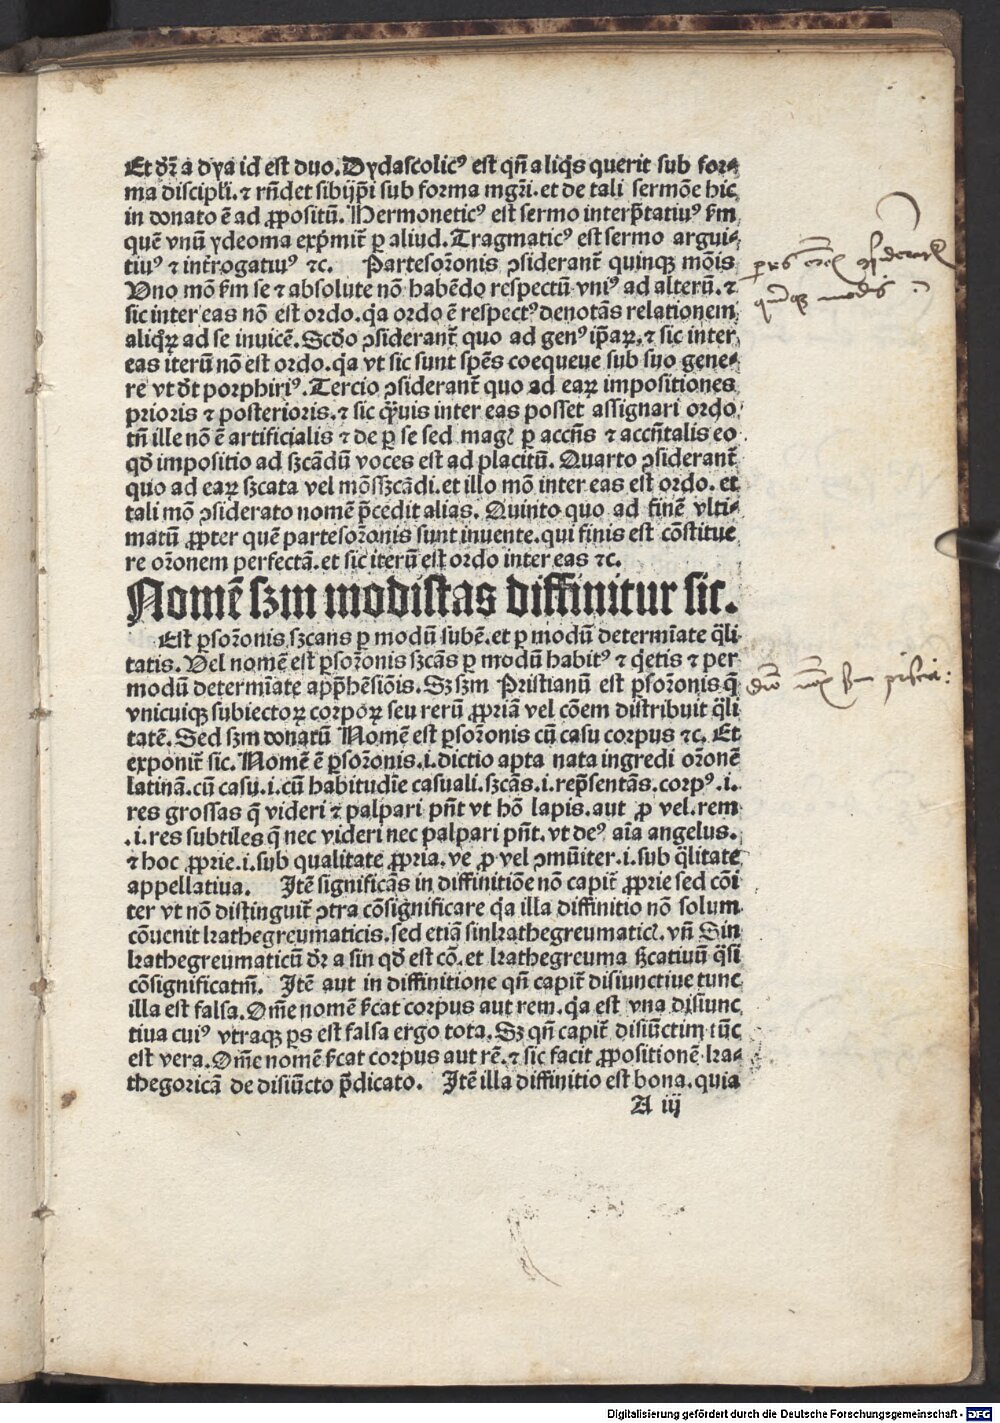 Et dr̄ a dya id est duo. Dydascolicꝰ est qn̄ aliqͥs querit sub for⸗
ma discipl̓i. ⁊ rn̄det sibijp̄i sub forma mgr̄i. et de tali sermōe hic
in donato ē ad ꝓpositū. Hermoneticꝰ est sermo interp̄tatiuꝰ ẜm
quē vnū ydeoma exp̄mit̄ ꝑ aliud. Tragmaticꝰ est sermo argui⸗
tiuꝰ ⁊ int̄rogatiuꝰ ⁊c. Partesor̄onis ꝯsiderant̄ quinqꝫ mōis
Uno mō ẜm se ⁊ absolute nō habēdo respectū vniꝰ ad alterū. ⁊
sic inter eas nō est ordo. qͥa ordo ē respectꝰ denotās relationem
aliqͦꝝ ad se inuicē. Scd̓o ꝯsiderant̄ quo ad genꝰ ip̄aꝝ. ⁊ sic inter
eas iterū nō est ordo. qͥa vt sic sunt sp̄es coequeue sub suo gene⸗
re vt dt̄ porphiriꝰ. Tercio ꝯsiderant̄ quo ad eaꝝ impositiones
prioris ⁊ posterioris. ⁊ sic qͣ̄uis inter eas posset assignari ordo
tn̄ ille nō ē artificialis ⁊ de ꝑ se sed magꝭ ꝑ accn̄s ⁊ accn̄talis eo
qd̓ impositio ad sꝫcādū voces est ad placitū. Quarto ꝯsiderant̄
quo ad eaꝝ sꝫcata vel mōssꝫcādi. et illo mō inter eas est ordo. et
tali mō ꝯsiderato nomē p̄cedit alias. Quinto quo ad finē vlti⸗
matū ꝓpter quē partesor̄onis sunt inuente. qui finis est cōstitue
re or̄onem perfectā. et sic iterū est ordo inter eas ⁊c.
Nomē sꝫm modistas diffinitur sic.
Est ꝑsor̄onis sꝫcans ꝑ modū subē. et ꝑ modū determīate qͣli
tatis. Vel nomē est ꝑsor̄onis sꝫcās ꝑ modū habitꝰ ⁊ qͥetis ⁊ per
modū determīate app̄hēsiōis. Sꝫ sꝫm Pristianū est ꝑsor̄onis q̄
vnicuiqꝫ subiectoꝝ corpoꝝ seu rerū ꝓpriā vel cōem distribuit qͣli
tatē. Sed sꝫm donatū Nomē est ꝑsor̄onis cū casu corpus ⁊c. Et
exponit̄ sic. Nomē ē ꝑsor̄onis .i. dictio apta nata ingredi or̄onē
latinā. cū casu .i. cū habitudīe casuali. sꝫcās .i. rep̄sentās. corpꝰ .i.
res grossas q̄ videri ⁊ palpari pn̄t vt hō lapis. aut ꝓ vel. rem
.i. res subtiles q̄ nec videri nec palpari pn̄t. vt deꝰ aīa angelus.
⁊ hoc ꝓprie .i. sub qualitate ꝓpria. ve ꝓ vel ꝯmūiter .i. sub qͣlitate
appellatiua. Itē significās in diffinitiōe nō capit̄ ꝓprie sed cōi
ter vt nō distinguit̄ ꝯtra cōsignificare qͥa illa diffinitio nō solum
cōuenit kathegreumaticis. sed etiā sinkathegreumaticꝭ. vn̄ Sin
kathegreumaticū dr̄ a sin qd̓ est cō. et kathegreuma ẜcatiuū qͣsi
cōsignificatm̄. Itē aut in diffinitione qn̄ capit̄ disiunctiue tunc
illa est falsa. Om̄e nomē ẜcat corpus aut rem. qͥa est vna disiunc
tiua cuiꝰ vtraqꝫ ꝑs est falsa ergo tota. Sꝫ qn̄ capit̄ disiūctim tūc
est vera. Om̄e nomē ẜcat corpus aut rē. ⁊ sic facit ꝓpositionē ka⸗
thegoricā de disiūcto p̄dicato. Itē illa diffinitio est bona. quia
A iij
quīqꝫ modis
Digitalisierung gefördert durch die Deutsche Forschungsgemeinschaft - DFG